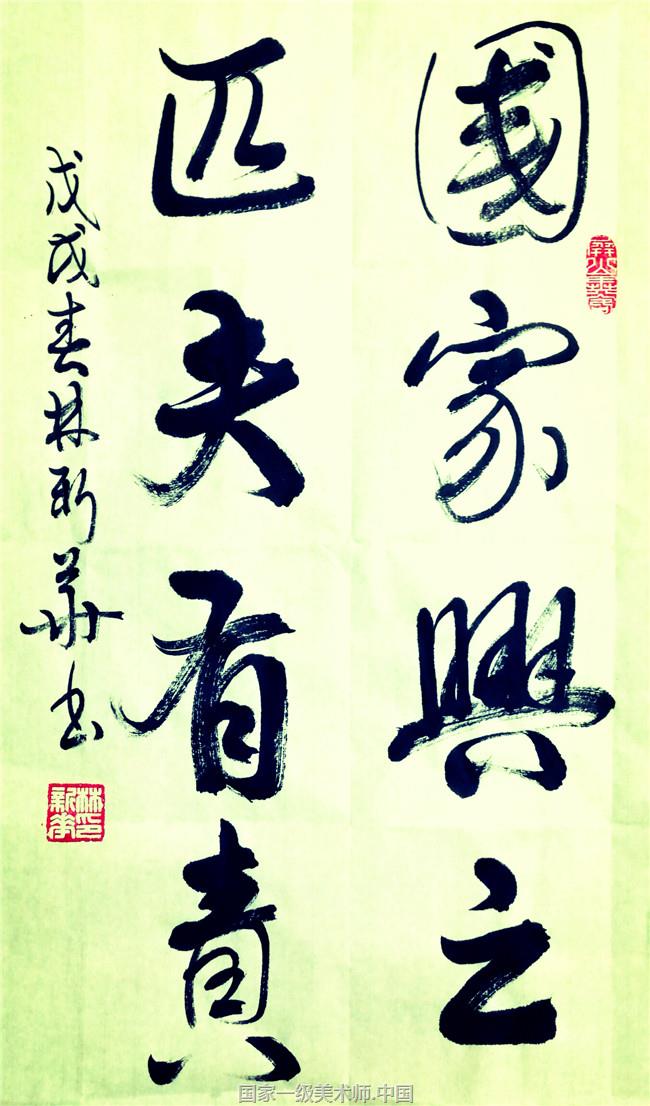 國家興亡
匹夫有責
戊戌春林新華書
林印新華
国家一级美术师.中国